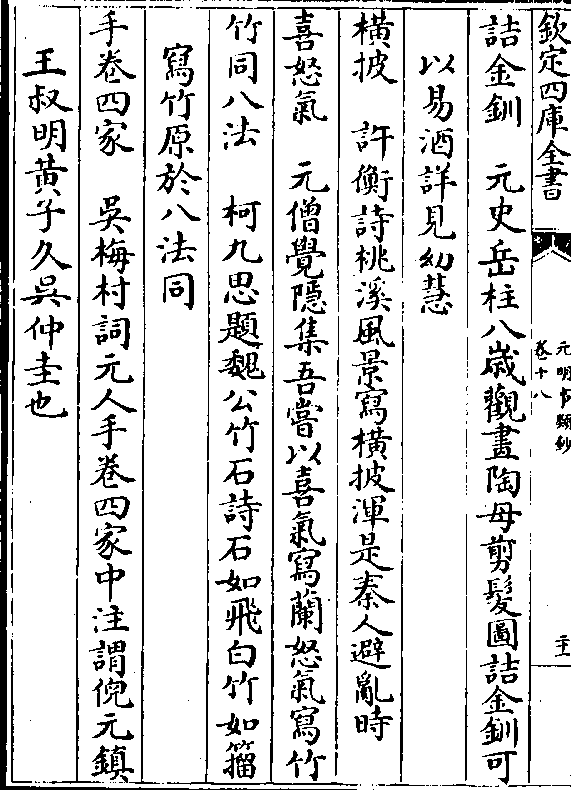 欽定四庫全書
元明事類鈔
卷十八
二十一
詰金釧　元史岳柱八歳觀畫陶母剪髮圖詰金釧可
以易酒詳見幼慧
橫披　許衡詩桃溪風景寫橫披渾是秦人避亂時
喜怒氣　元僧覺隱集吾嘗以喜氣寫蘭怒氣寫竹
竹同八法　柯九思題魏公竹石詩石如飛白竹如籀
寫竹原於八法同
手卷四家　吳梅村詞元人手卷四家中注謂倪元鎮
王叔明黃子久吳仲圭也